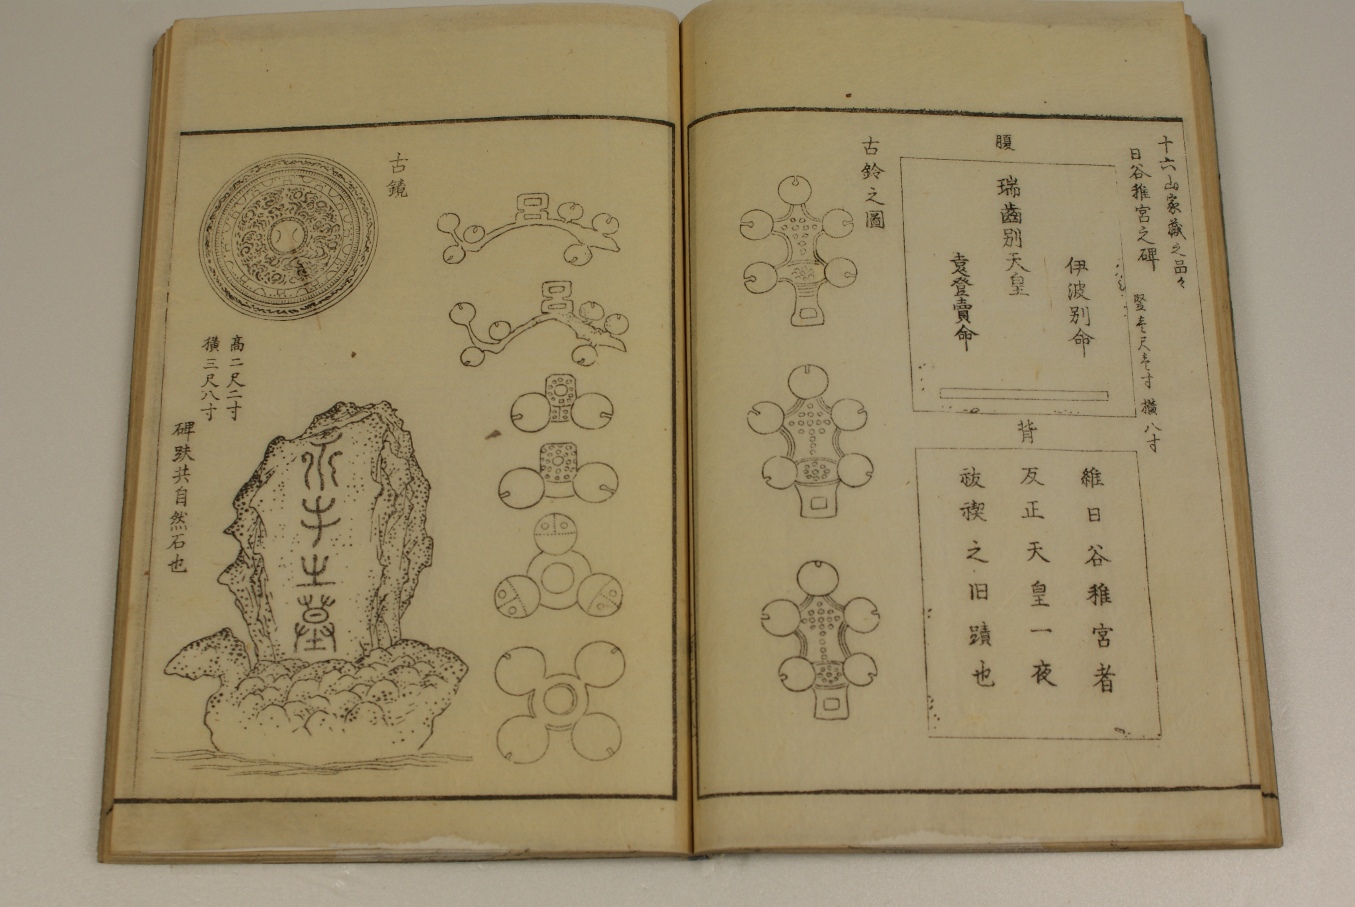 十六山家蔵之品々
日谷稚宮之碑 竪壱尺壱寸 横八寸
腹
伊波別命
瑞歯別天皇
袁登賣命
背
維日谷稚宮者
反正天皇一夜
祓禊之旧蹟也
古鈴之圖
古鏡
高二尺二寸
横三尺八寸
碑趺共自然石也